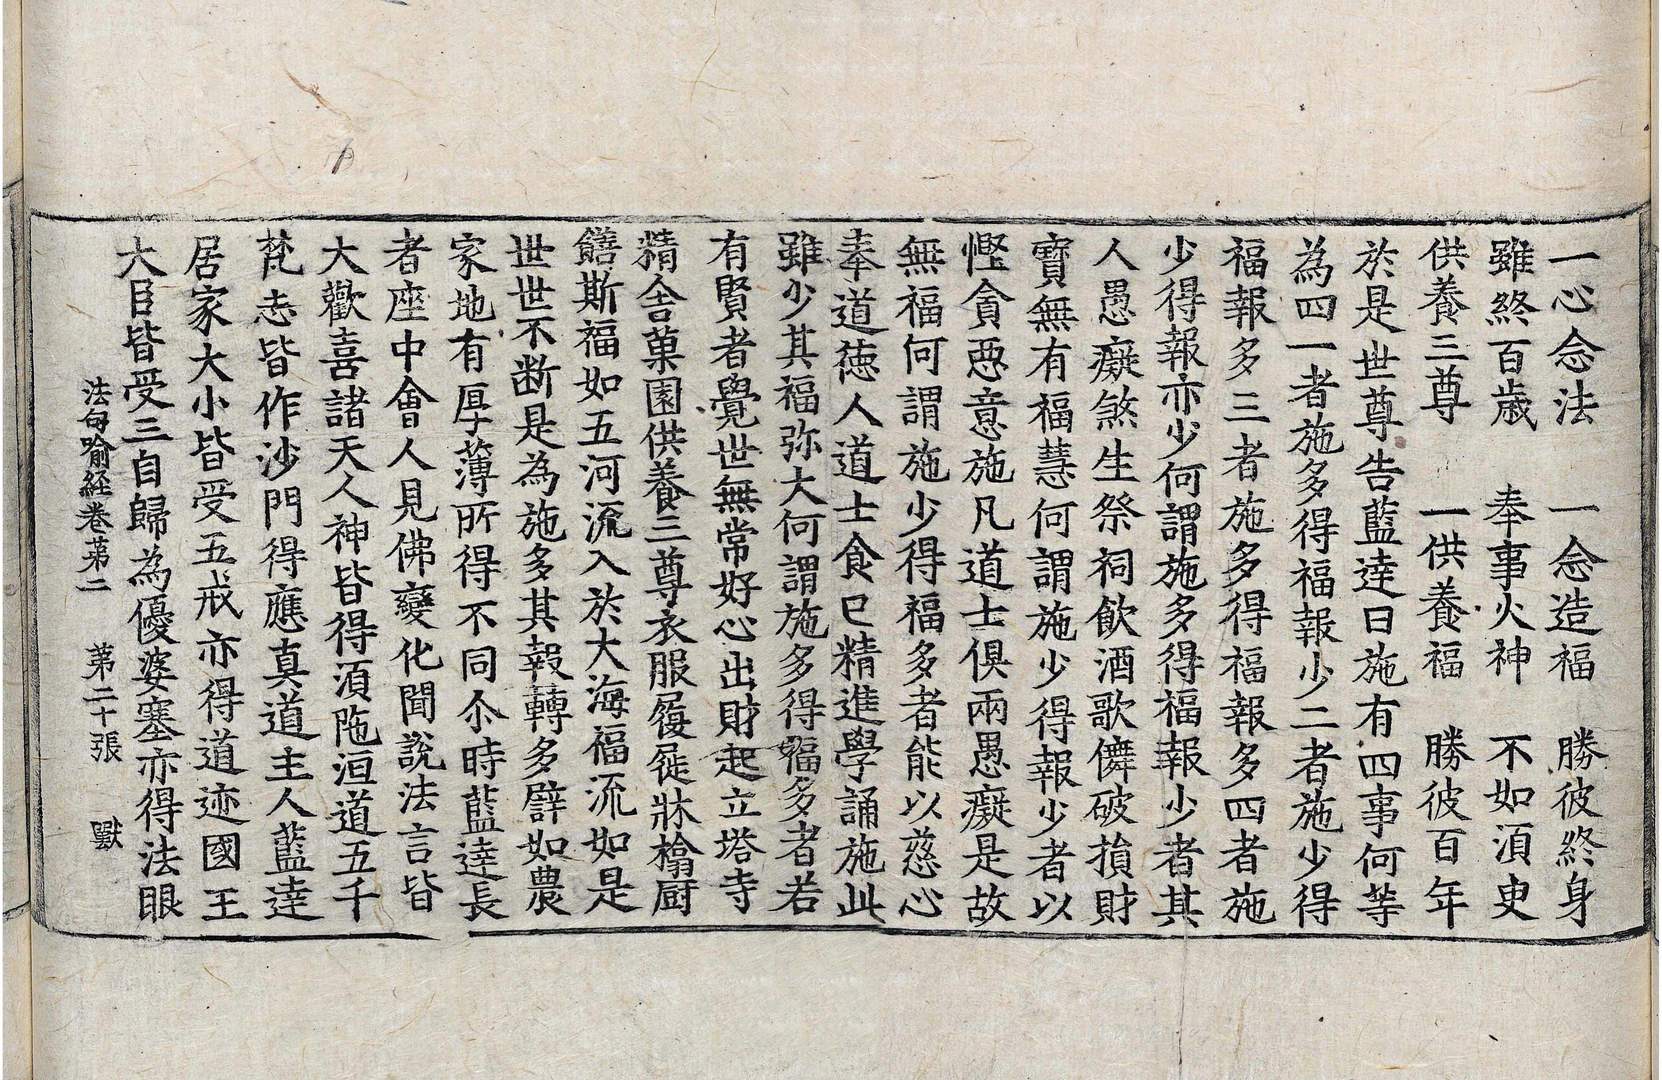 一心念法　一念造福　勝彼終身
雖終百歳　奉事火神　不如湏臾
供養三尊　一供養福　勝彼百年
於是世尊告藍達曰施有四事何等
為四一者施多得福報少二者施少得
福報多三者施多得福報多四者施
少得報亦少何謂施多得福報少者其
人愚癡煞生祭祠飲酒歌儛破損財
寶無有福慧何謂施少得報少者以
慳貪惡意施凡道士俱兩愚癡是故
無福何謂施少得福多者能以慈心
奉道德人道士食已精進學誦施此
雖少其福弥大何謂施多得福多者若
有賢者覺世無常好心出財起立塔寺
精舍菓園供養三尊衣服履屣牀榻厨
饍斯福如五河流入於大海福流如是
世世不断是為施多其報轉多譬如農
家地有厚薄所得不同尒時藍達長
者座中會人見佛變化聞說法言皆
大歡喜諸天人神皆得湏陁洹道五千
梵志皆作沙門得應真道主人藍達
居家大小皆受五戒亦得道迹國王
大臣皆受三自歸為優婆塞亦得法眼
法句喻経卷苐二　第二十張　獸